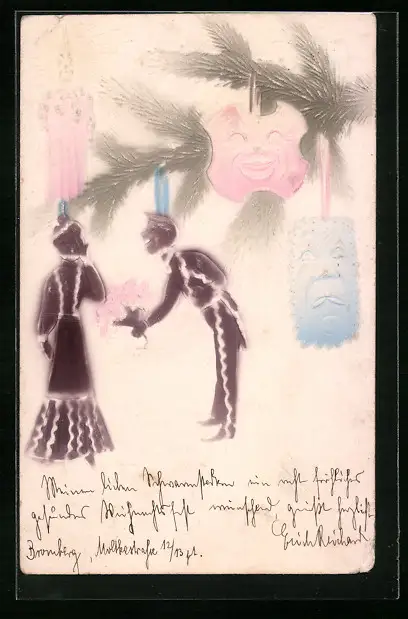 Meinen lieben Schwarmstedten ein recht fröhliches
gesundes Weihnachtsfest wünschend grüßt herzlichst
Erich Reichard
Bromberg, Moltkestraße 12/13 pt.